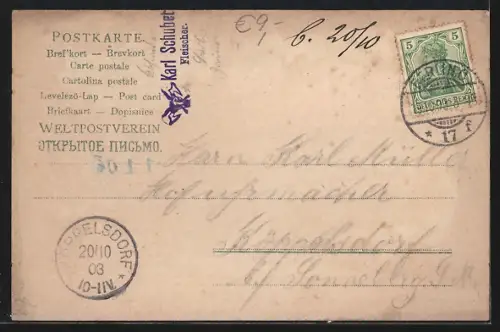 POSTKARTE.
Bref'kort — Brevkort
Carte postale
Cartolina postale
Levelező-Lap — Post card
Briefkaart — Dopisnice
WELTPOSTVEREIN
ОТКРЫТОЕ ПИСЬМО.
Karl Schubet
Fleischer.
€9,-
b. 20/10
5 5
DEUTSCHES REICH
* 17 f
Herrn Karl Müller
Hofuhrmacher
Köppelsdorf
b/ Sonneberg S. M.
KÖPPELSDORF *
20/10
03